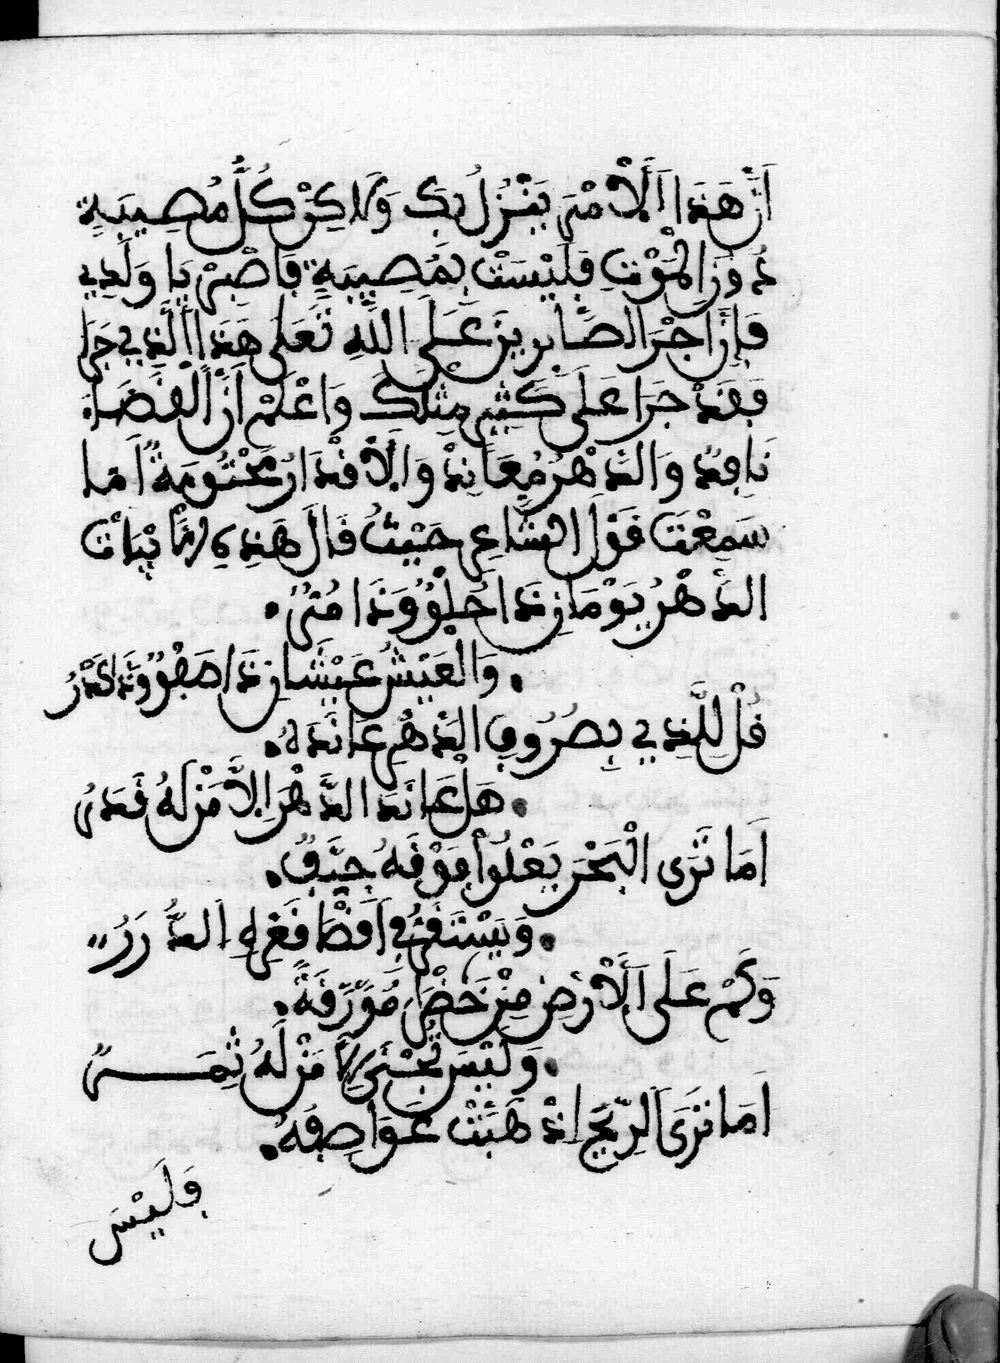 أن هذا الأمر ينزل بك ولاكن كل مصيبة
دون الموت فليست بمصيبة فاصبر يا ولدي
فإن اجر الصابرين على الله تعلى هذا الذي جرا
فقد جرا على كثير مثلك واعلم أن القضا
نافد والدهر معاند والأقدار محتومة اما
سمعت قول الشاعر حيث قال هذه الأبيات
الدهر يومان ذا حلو وذا مر
والعيش عيشان ذا صفو وذا كدر
قل للذي بصروف الدهر عاندنا
هل عاند الدهر إلا من له قدر
اما ترى البحر يعلوا فوقه جيف
ويستقر في اقصا قعره الدرر
وكم على الأرض من خضر مورقة
وليس تجنى إلا من له ثمر
اما ترى الريح اذ هبت عواصفه
وليس